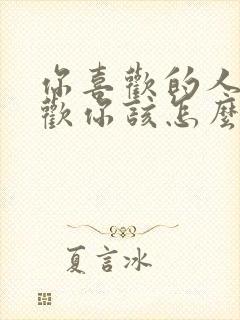 你喜歡的人
歡你該怎麼
夏言冰